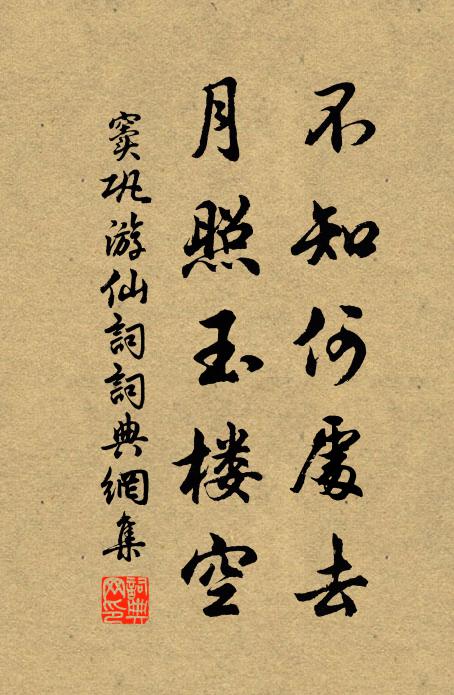 不知何處去
月照玉楼空
竇巩游仙詞詞典網集
詞典網印